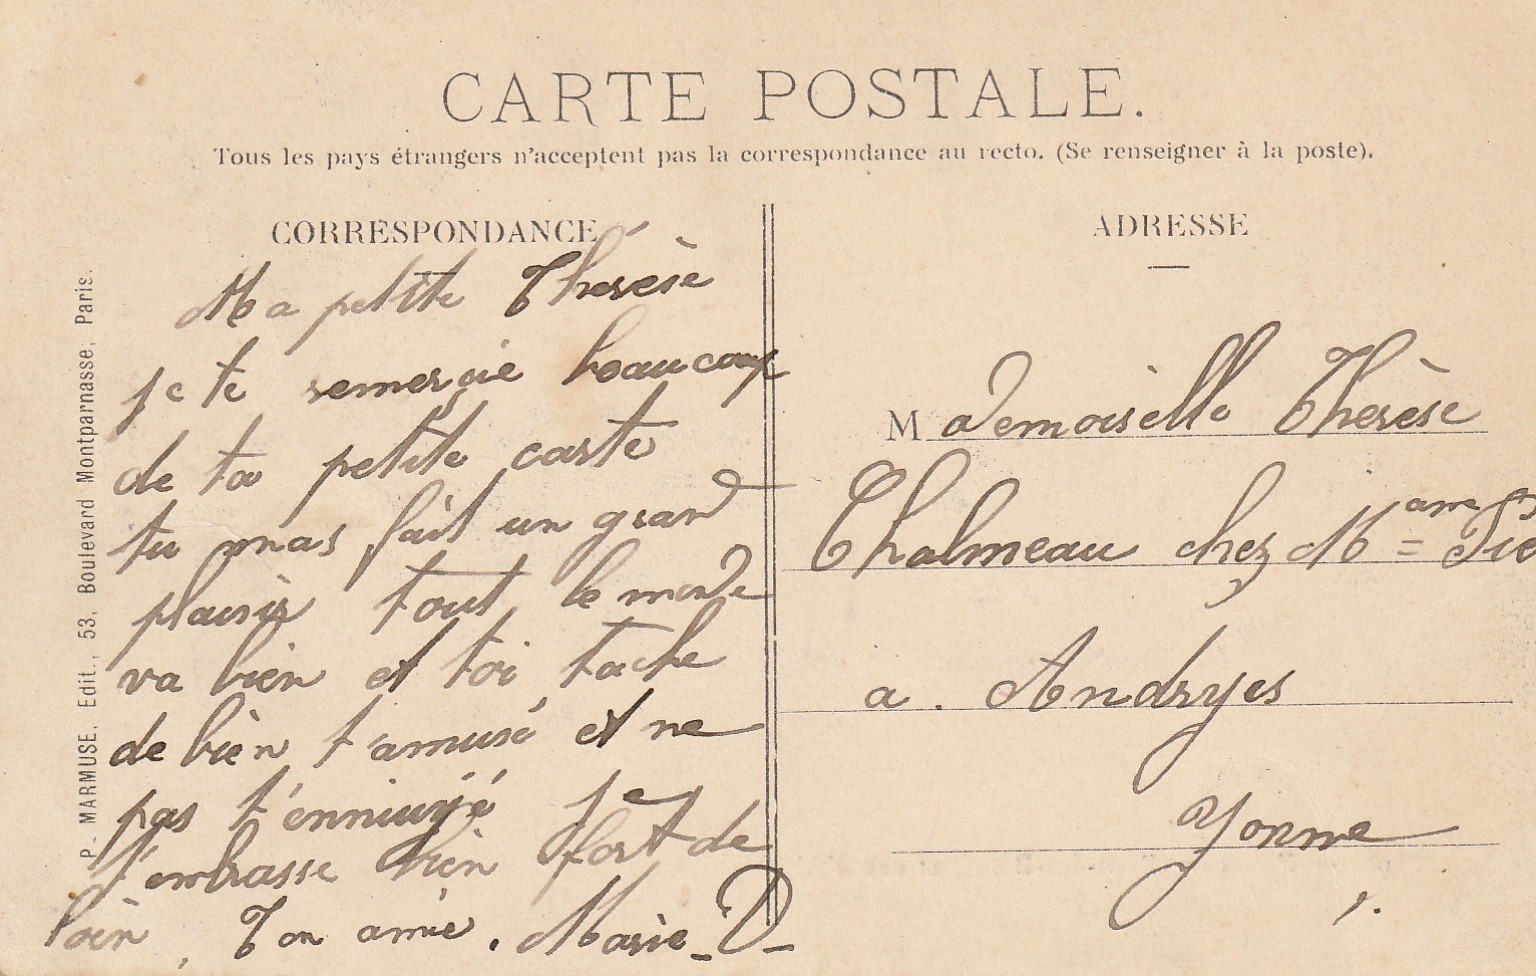 CARTE POSTALE.
Tous les pays étrangers n'acceptent pas la correspondance au recto. (Se renseigner à la poste).
CORRESPONDANCE
Ma petite Thérèse
je te remercie beaucoup
de ta petite carte
tu mas fait un grand
plaisir tout le monde
va bien et toi tache
de bien t'amusé et ne
pas t'enniuyé je
t'embrasse bien fort de
loin, Ton amie. Marie D
P. MARMUSE, Edit., 53, Boulevard Montparnasse, Paris.
ADRESSE
Mademoiselle Thérèse
Chalmeau chez Mame
a. Andryes
Yonne